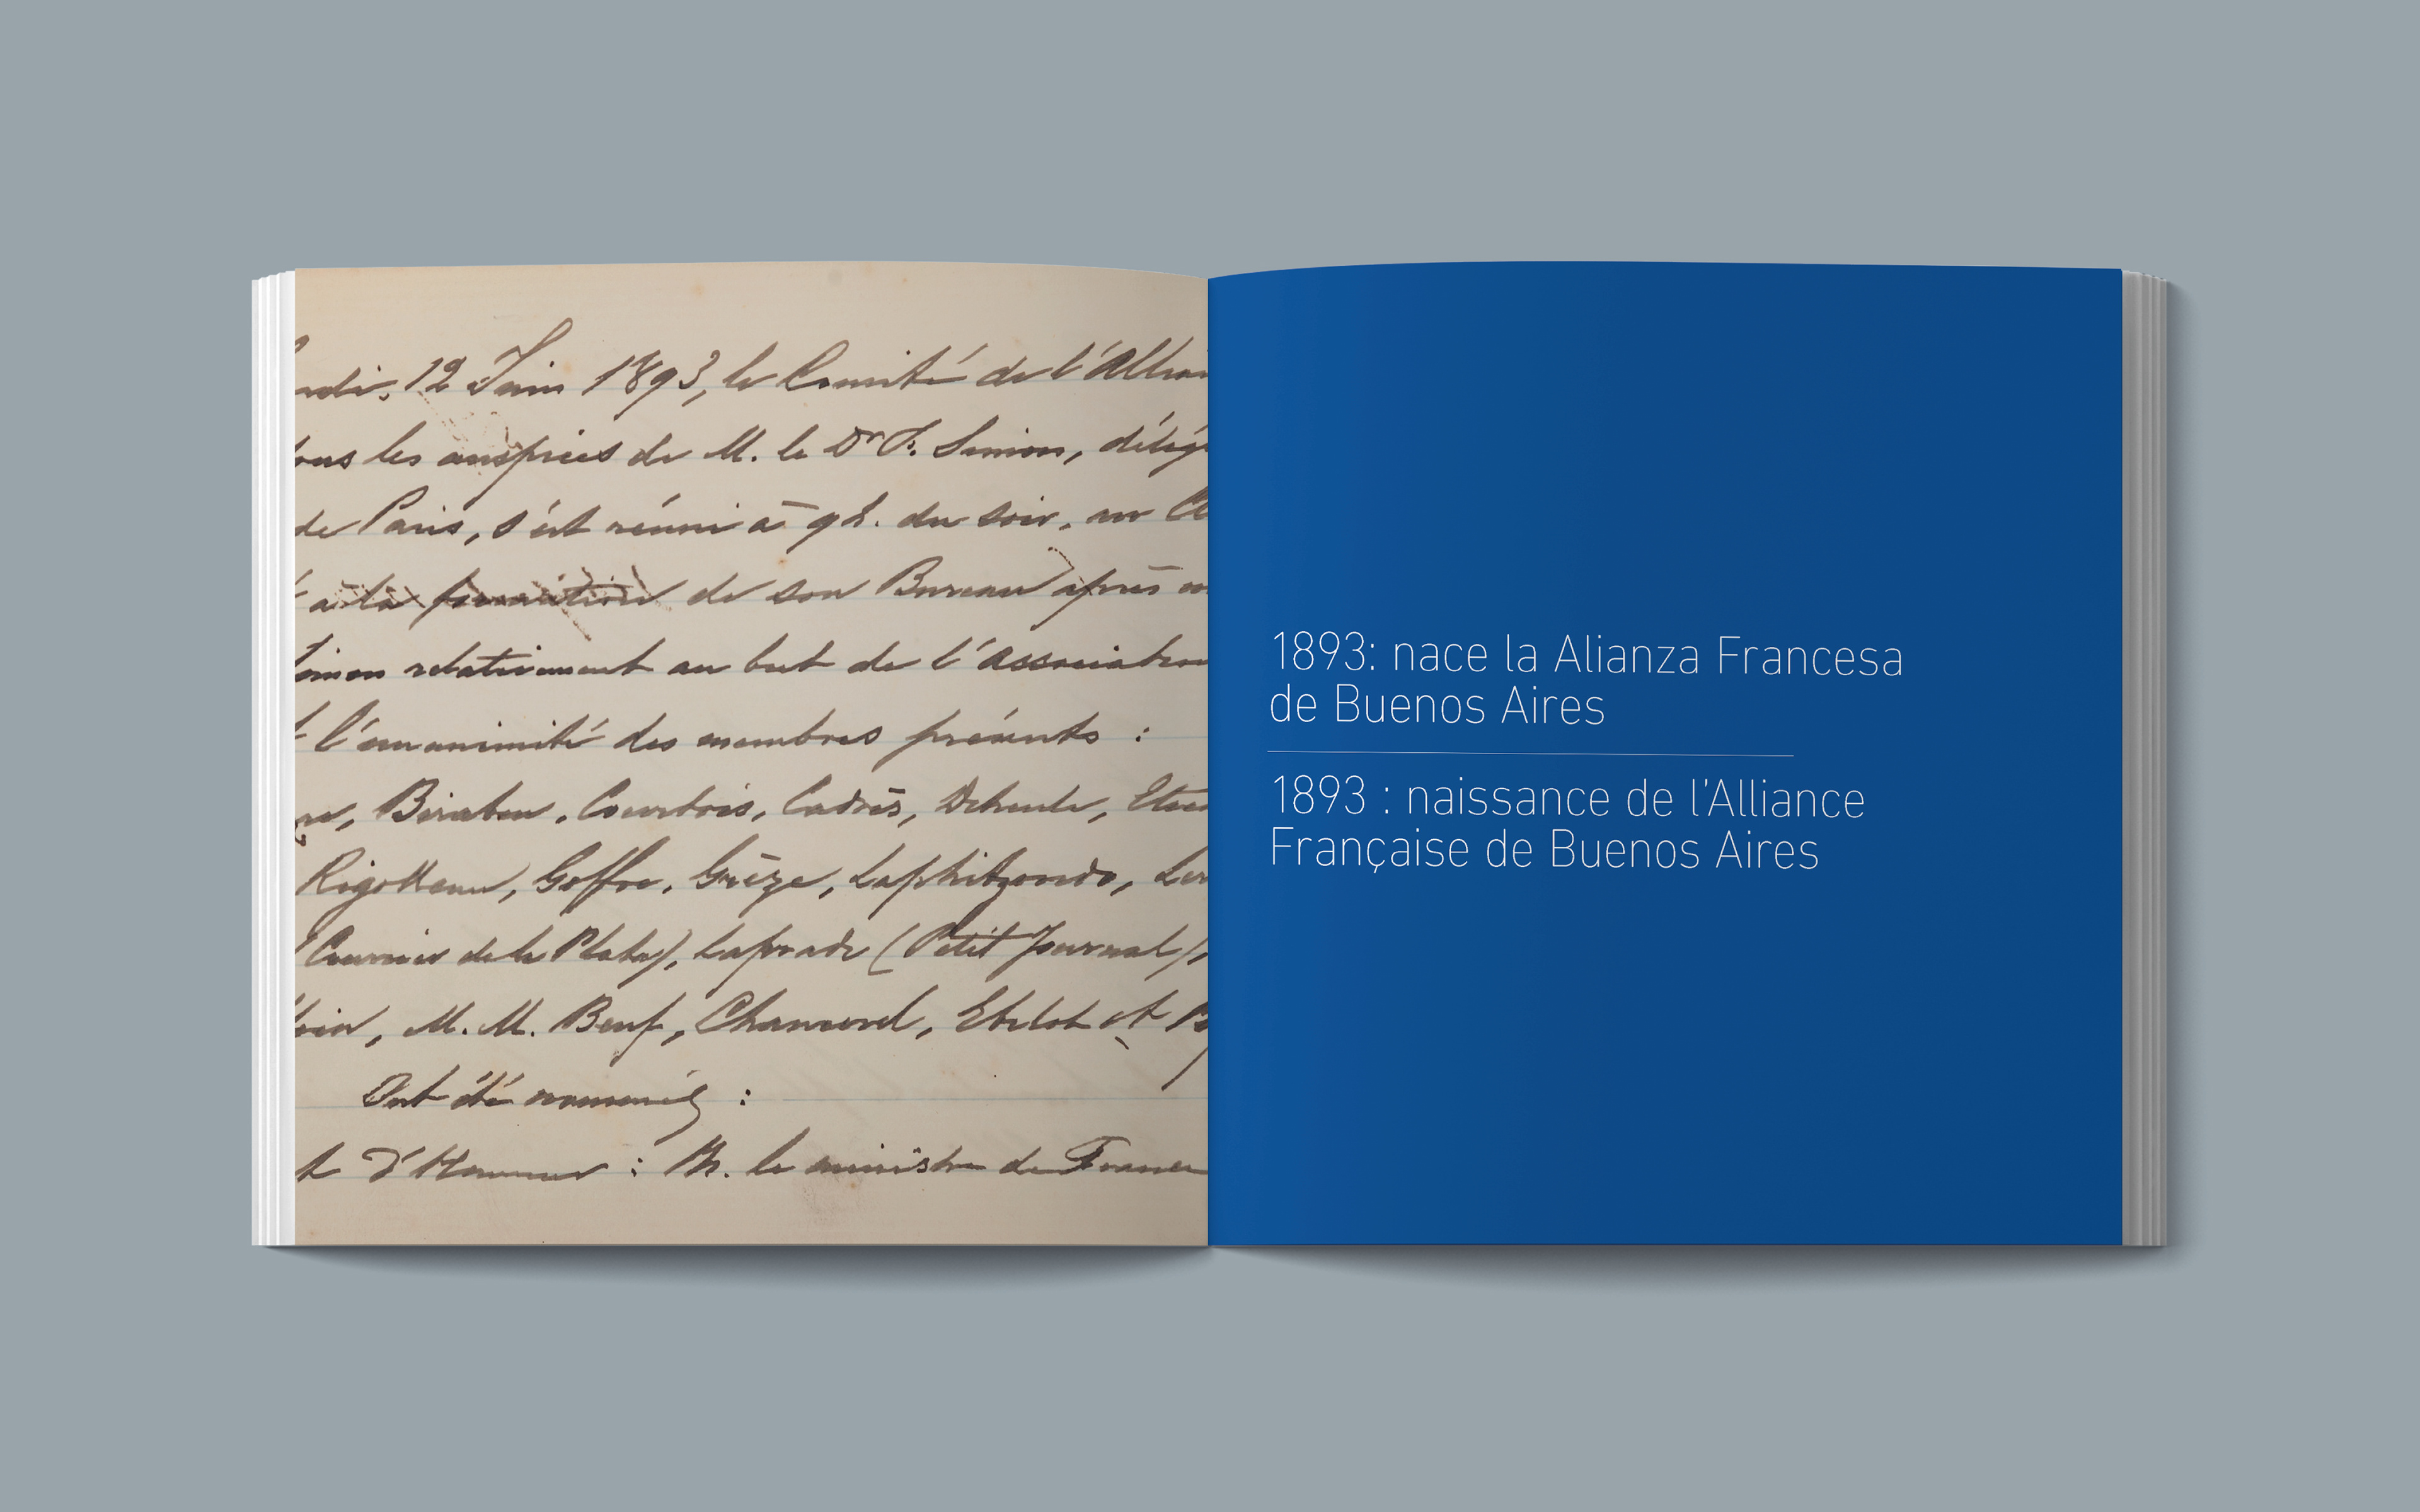 ndi, 12 Juin 1893, le Comité de l'Allian
ous les auspices de M. le Dr F. Simon, délég
de Paris, s'est réuni à 9 h. du soir, au
à la formation de son Bureau après
imon relativement au but de l'Association
l'unanimité des membres présents :
Biraben, Courtois, Cadrès,
Rigolleau, Goffre, Grèze, Laphitzondo,
Courrier de la Plata), Laprade (Petit Journal),
M. M. Beuf, Chanourd, Ebelot et
Ont été nommés :
t d'Honneur : M. le ministre de France
1893: nace la Alianza Francesa
de Buenos Aires
1893 : naissance de l'Alliance
Française de Buenos Aires